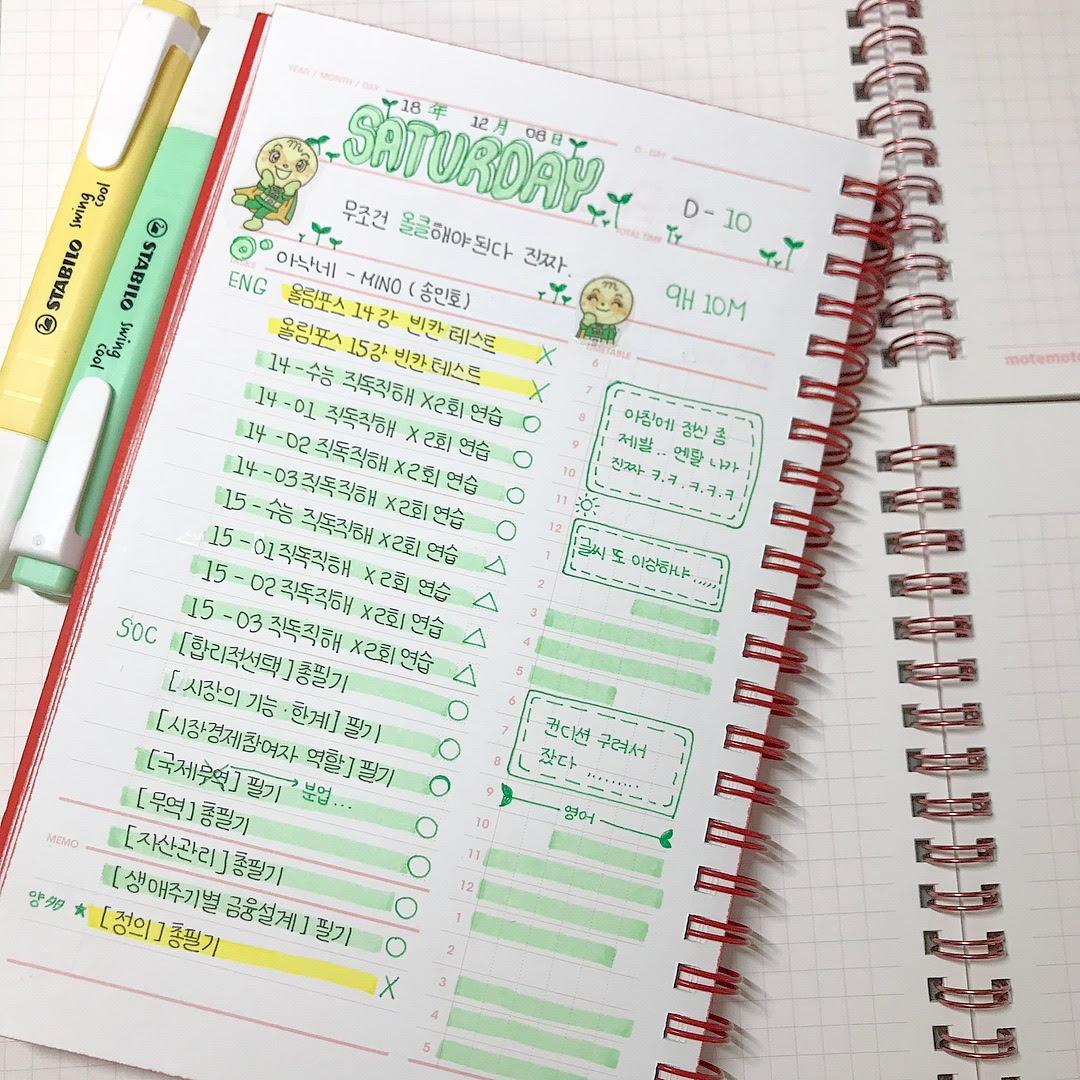 YEAR / MONTH / DAY
18 年 12 月 08 日
D-DAY
SATURDAY
D - 10
무조건 올클해야된다 진짜.
TOTAL TIME
아낙네 - MINO (송민호)
9H 10M
ENG
올림포스 14강 빈칸 테스트 X
올림포스 15강 빈칸 테스트 X
14 - 수능 직독직해 X2회 연습
14 - 01 직독직해 X2회 연습
14 - 02 직독직해 X2회 연습
14 - 03 직독직해 X2회 연습
15 - 수능 직독직해 X2회 연습
15 - 01 직독직해 X2회 연습
15 - 02 직독직해 X2회 연습
15 - 03 직독직해 X2회 연습
SOC
[합리적선택] 총필기
[시장의 기능·한계] 필기
[시장경제참여자 역할] 필기
[국제무역] 필기 → 분업...
[무역] 총필기
MEMO
[자산관리] 총필기
[생애주기별 금융설계] 필기
양多 ★ [정의] 총필기 X
TIMETABLE
6
7
8
9
10
11
12
1
2
3
4
5
6
7
8
9
10
11
12
1
2
3
4
5
아침에 정신 좀
제발.. 멘탈 나가
진짜 ㅋ.ㅋ.ㅋ.ㅋ.ㅋ
글씨 또 이상하냐 .....
컨디션 구려서
잤다 ........
영어
STABILO swing cool
STABILO swing cool
motemote